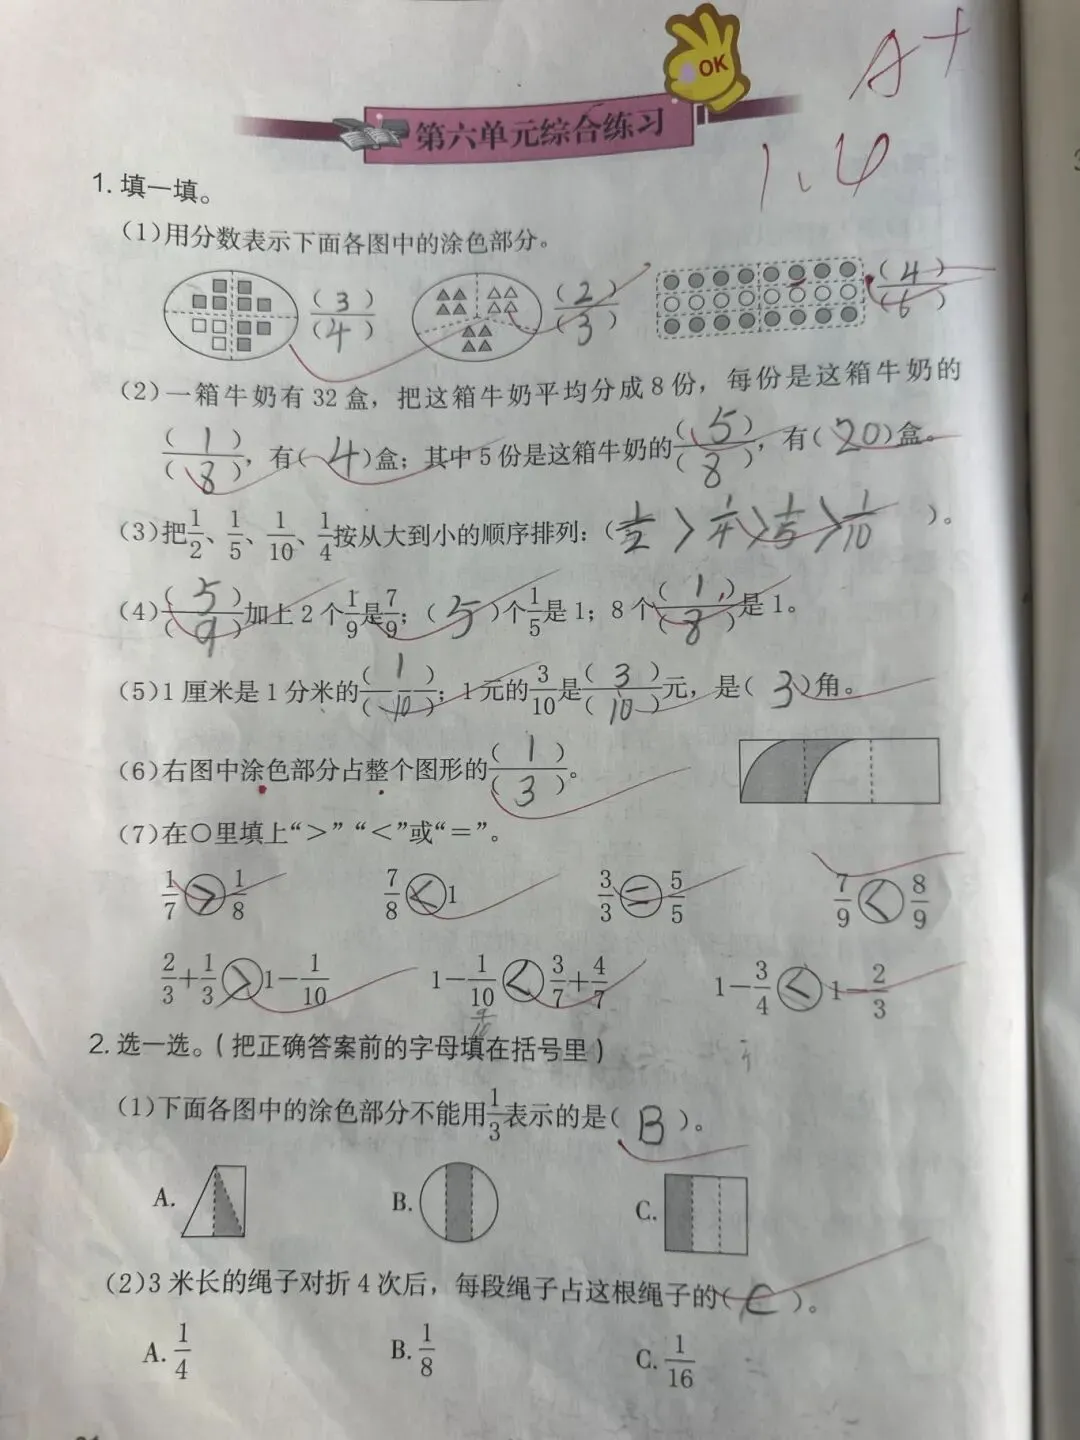 OK
A+
第六单元综合练习
1.4
1. 填一填。
(1)用分数表示下面各图中的涂色部分。
(3)/(4) (2)/(3) (4)/(6)
(2)一箱牛奶有 32 盒，把这箱牛奶平均分成 8 份，每份是这箱牛奶的
(1)/(8)，有(4)盒；其中 5 份是这箱牛奶的(5)/(8)，有(20)盒。
(3)把1/2、1/5、1/10、1/4按从大到小的顺序排列：(1/2 > 1/4 > 1/5 > 1/10)。
(4)(5)/(9)加上 2 个1/9是7/9；(5)个1/5是 1；8 个(1)/(8)是 1。
(5)1 厘米是 1 分米的(1)/(10)；1 元的3/10是(3)/(10)元，是(3)角。
(6)右图中涂色部分占整个图形的(1)/(3)。
(7)在○里填上“＞”“＜”或“＝”。
1/7 > 1/8 7/8 < 1 3/3 = 5/5 7/9 < 8/9
2/3+1/3 > 1-1/10 1-1/10 < 3/7+4/7 1-3/4 < 1-2/3
9/10
2. 选一选。(把正确答案前的字母填在括号里)
(1)下面各图中的涂色部分不能用1/3表示的是(B)。
A. B. C.
(2)3 米长的绳子对折 4 次后，每段绳子占这根绳子的(C)。
A. 1/4 B. 1/8 C. 1/16